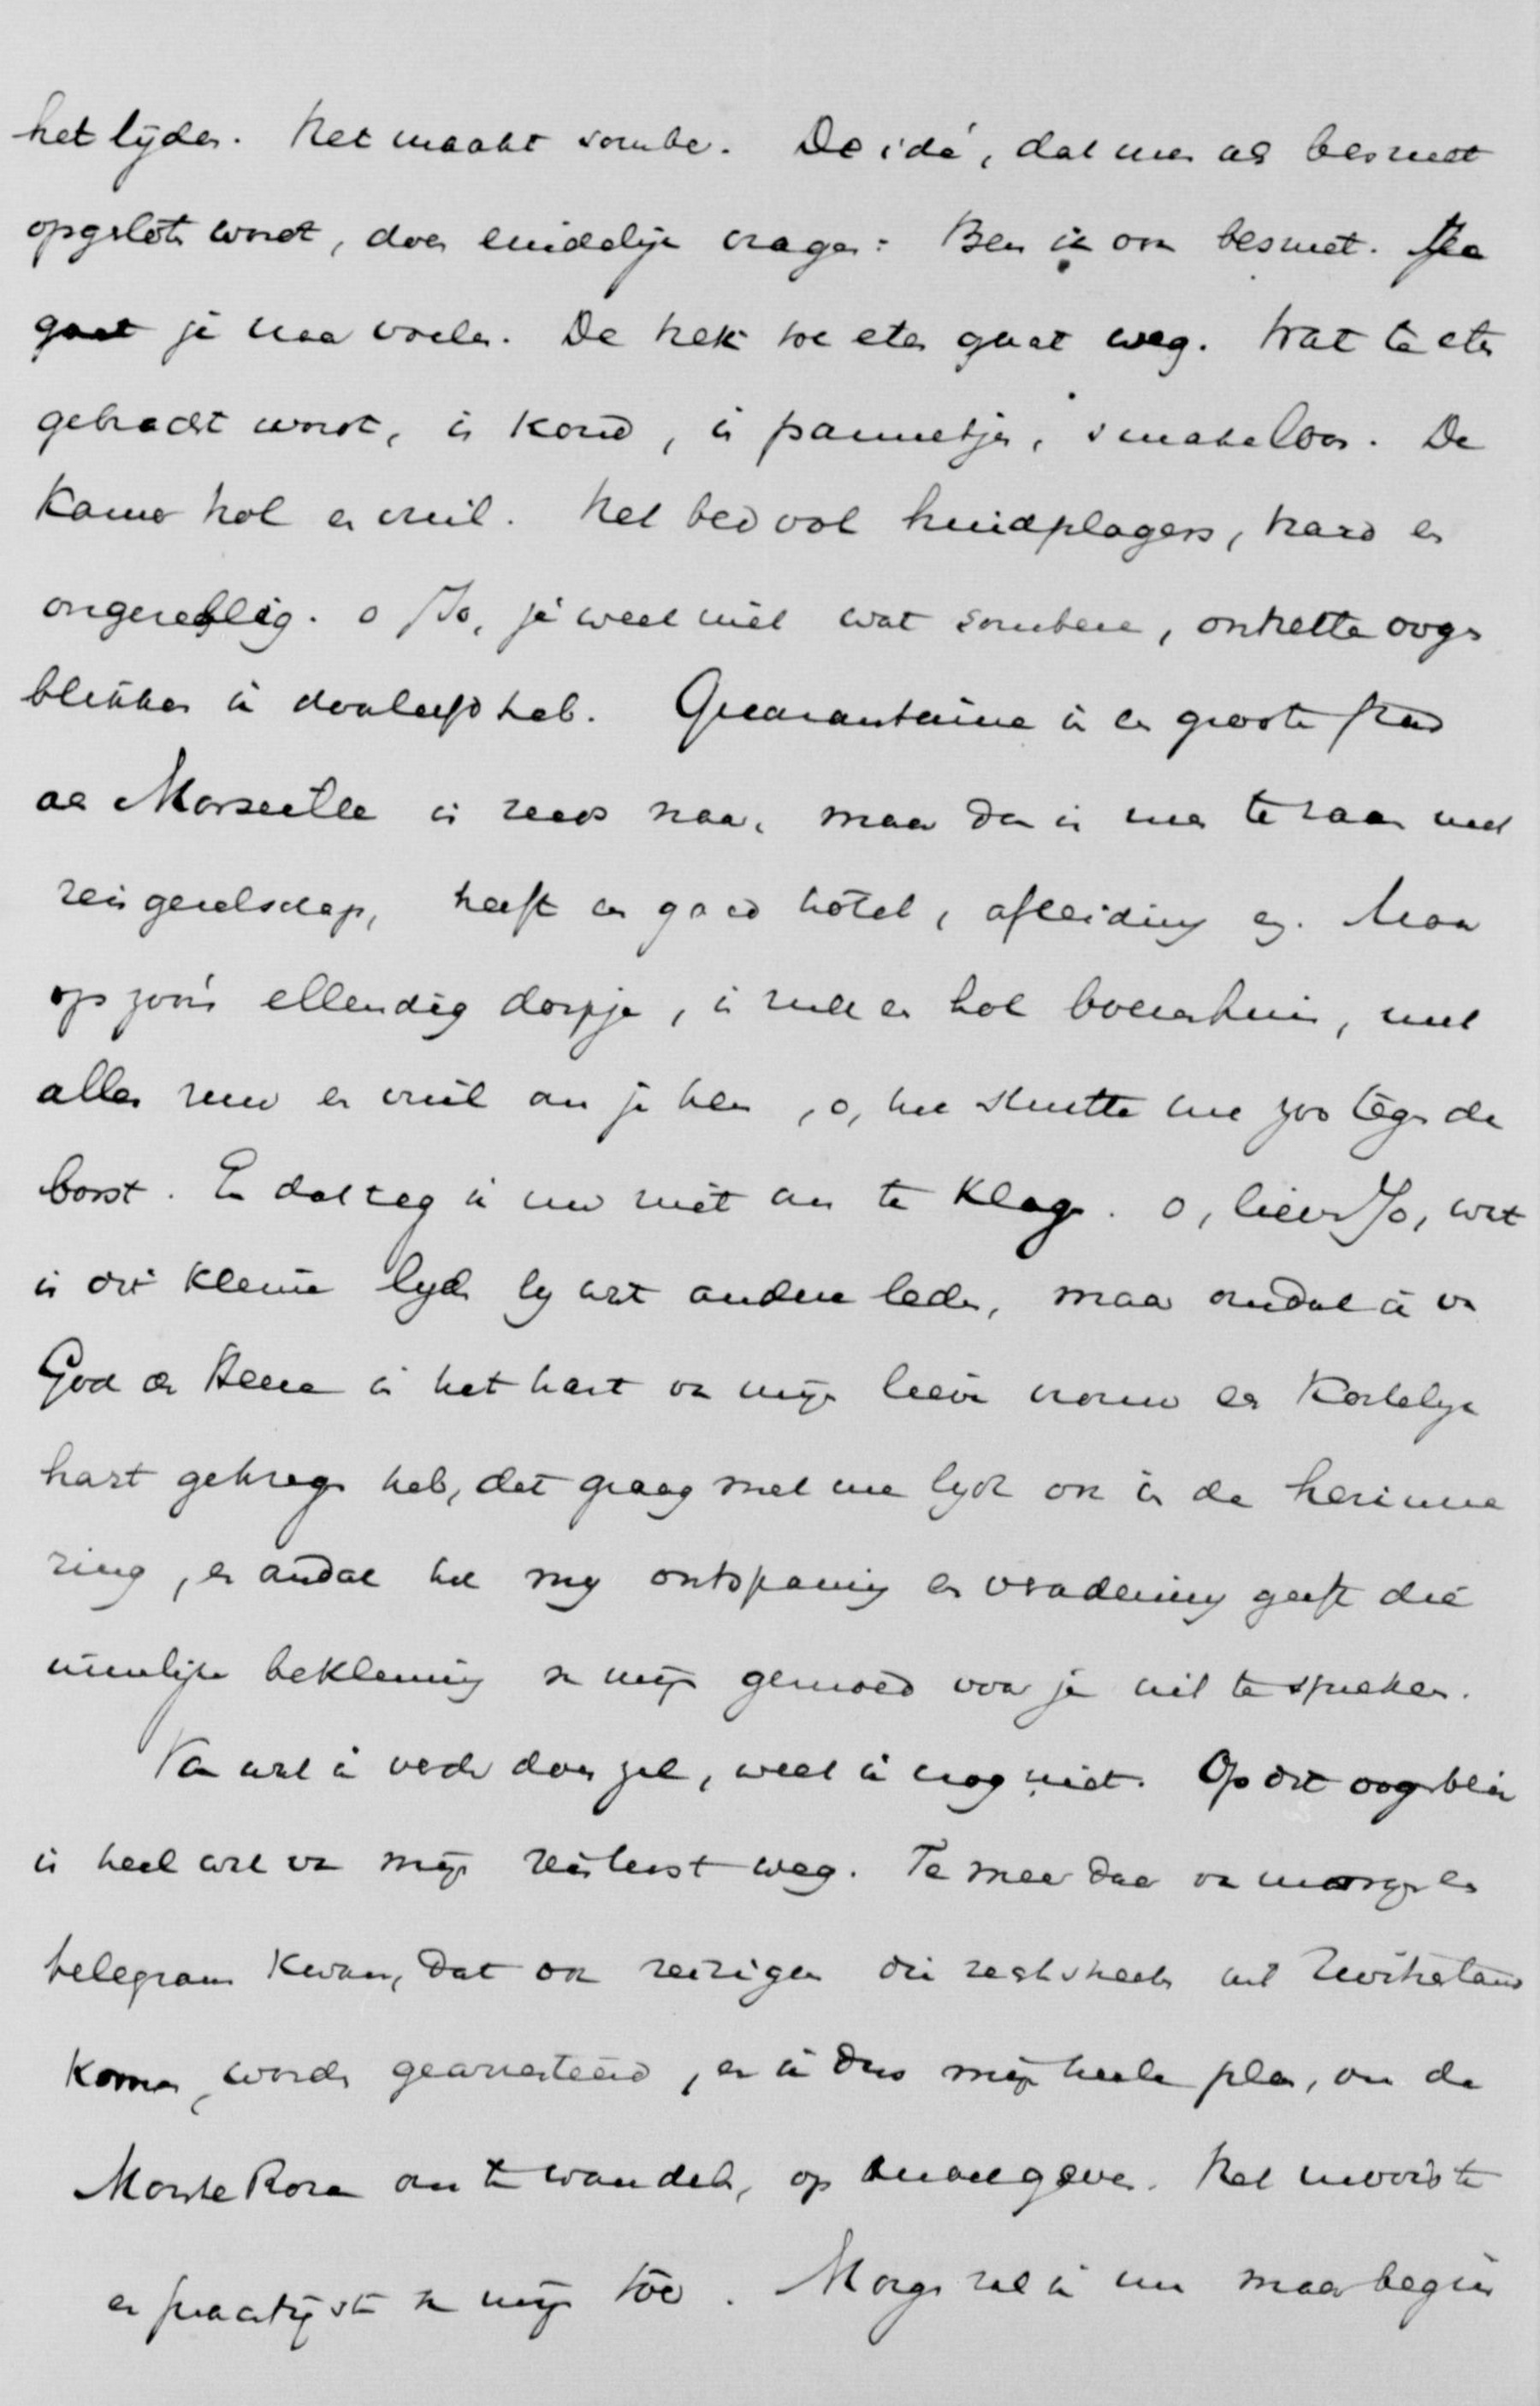 het lijden. Het maakt somber. De idé, dat men als besmet
opgesloten wordt, doet eindelijk vragen: Ben ik ook besmet. Je
gaat je naar voelen. De trek tot eten gaat weg. Wat te eten
gebracht wordt, is koud, in pannetjes, smakeloos. De
kamer hol en vuil. Het bed vol huidplagers, hard en
ongezellig. o Jo, je weet niet wat sombere, ontzette oogen
blikken ik doorleefd heb. Quarantaine in een groote stad
als Marseille is reeds naar, maar dan is men te zaam met
reisgezelschap, heeft een goed hôtel, afleiding enz. Maar
op zoo'n ellendig dorpje, in zulk een hol boerenhuis, met
alles ruw en vuil om je heen, o, het stuitte me zoo tegen de
borst. En dat zeg ik nu niet om te klagen. o, lieve Jo, wat
is dit kleine lijden bij wat anderen leden, maar omdat ik van
God den Heere in het hart van mijn lieve vrouw een kostelijk
hart gekregen heb, dat graag met me lijdt ook in de herinne
ring, en omdat het mij ontspanning en verademing geeft die
innerlijke beklemming van mijn gemoed voor je uit te spreken.
Van wat ik verder doen zal, weet ik nog niet. Op dit oogenblik
is heel wat van mijn reislust weg. Te meer daar van morgen een
telegram kwam, dat ook reizigers die rechtstreeks uit Zwitserland
komen, worden gearresteerd, en ik dus mijn heele plan, om de
Monte Rosa om te wandelen, op moet geven. Het mooiste
en prachtigste van mijn toer. Morgen zal ik nu maar beginnen